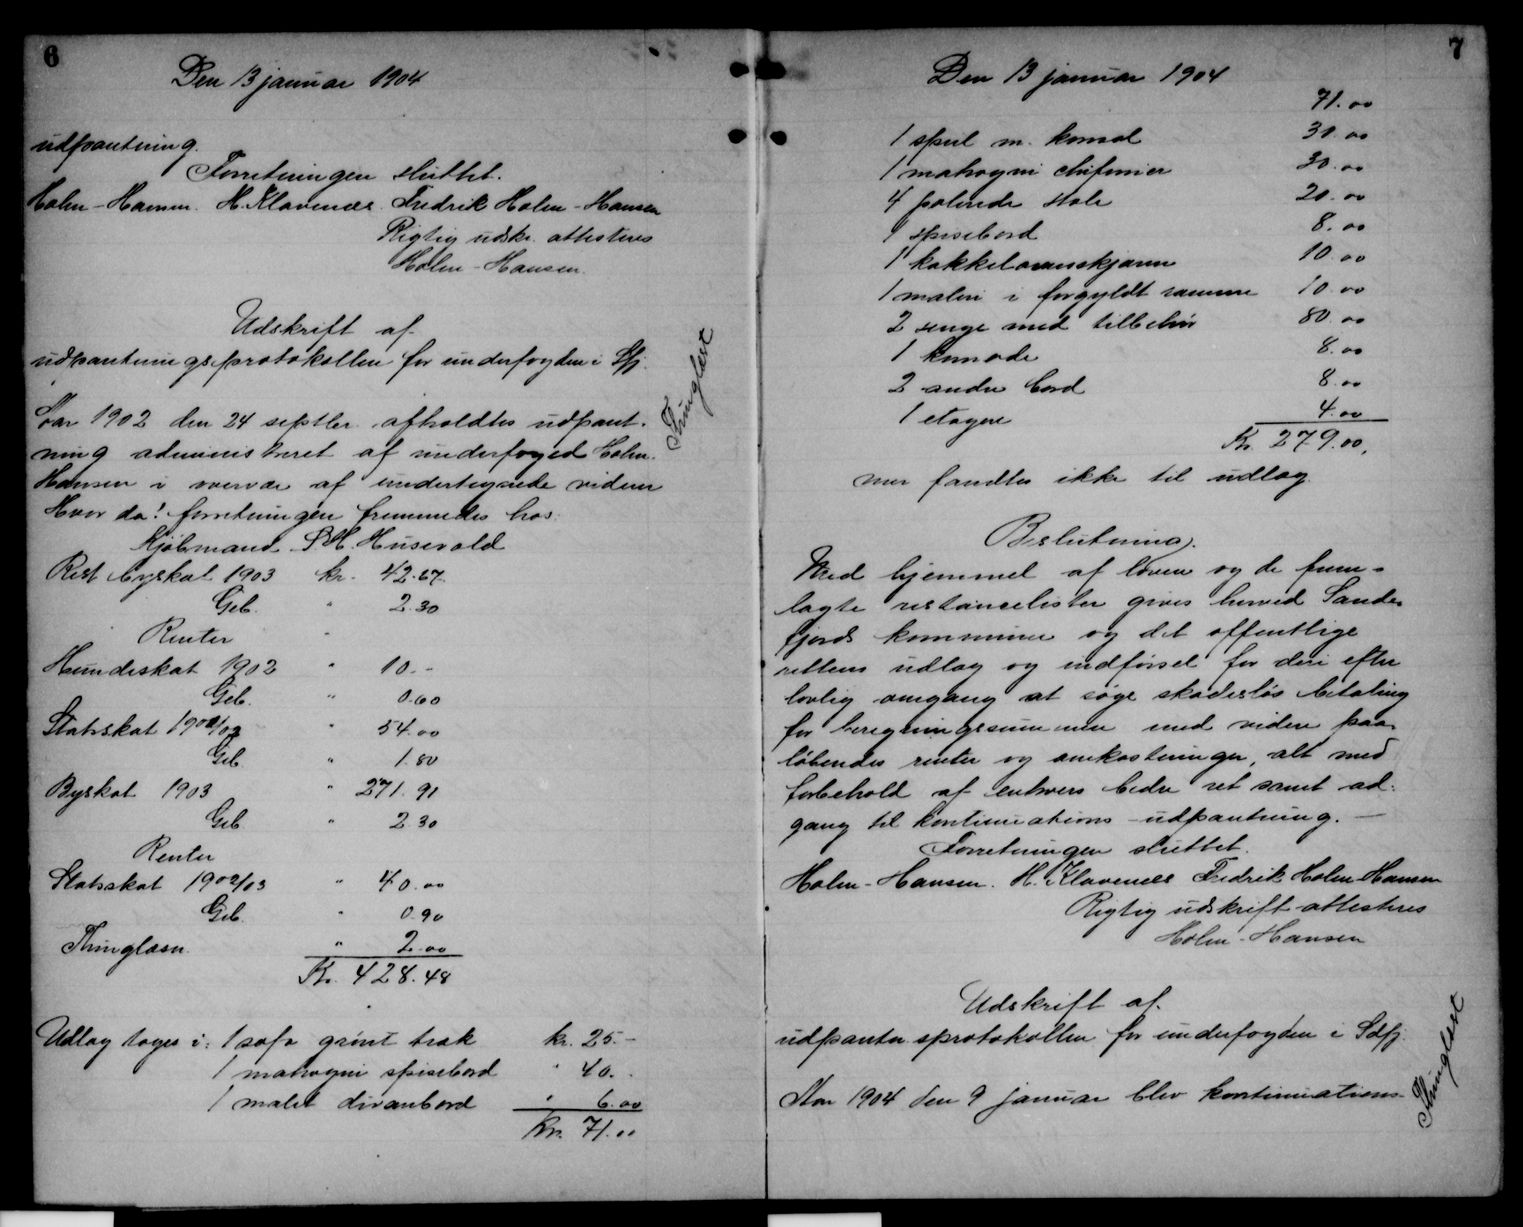 6
Den 13 januar 1904
udpantning.
Forretningen sluttet.
Holm-Hansen. H. Klavenæs. Fredrik Holm-Hansen
Rigtig udskr. attesteres
Holm-Hansen.
Udskrift af
udpantningsprotokollen for underfogden i Sfj.
Thinglæst
Aar 1902 den 24 septbr. afholdtes udpant-
ning administreret af underfoged Holm-
Hansen i overvær af undertegnede vidner
Hvor da! forretningen fremmedes hos
Kjøbmand S H. Husevold
Rest byskat 1903 kr. 42.67.
Geb. " 2.30
Renter "
Hundeskat 1902 " 10.-
Geb. " 0.60
Statsskat 1902/03 " 54.00
Geb. " 1.80
Byskat 1903 " 271.91
Geb " 2.30
Renter
Statsskat 1902/03 " 40.00
Geb. " 0.90
Thinglæsn. " 2.00
Kr. 428.48
Udlæg toges i: 1 sofa grønt træk kr. 25.-
1 mahogni spisebord " 40.-
1 malet divanbord " 6.00
Kr. 71.00
7
Den 13 januar 1904
71.00
1 speil m. konsol 30.00
1 mahogni chifonier 30.00
4 polerede stole 20.00
1 spisebord 8.00
1 kakkelovnsskjærm 10.00
1 maleri i forgyldt ramme 10.00
2 senge med tilbehør 80.00
1 komode 8.00
2 andre bord 8.00
1 etagere 4.00
Kr. 279.00,
mer fandtes ikke til udlæg.
Beslutning.
Med hjemmel af loven og de frem-
lagte restancelister gives herved Sande-
fjords kommune og det offentlige
rettens udlæg og indførsel for deri efter
lovlig omgang at søge skadesløs betaling
for beregningssummen med videre paa-
løbendes renter og omkostninger, alt med
forbehold af enhvers bedre ret samt ad-
gang til kontinuations-udpantning. —
Forretningen sluttet.
Holm-Hansen. H. Klavenæs Fredrik Holm Hansen
Rigtig udskrift attesteres
Holm-Hansen
Udskrift af.
udpantn sprotokollen for underfogden i Sdfj.
Thinglæst
Aar 1904 den 9 januar blev kontinuations-